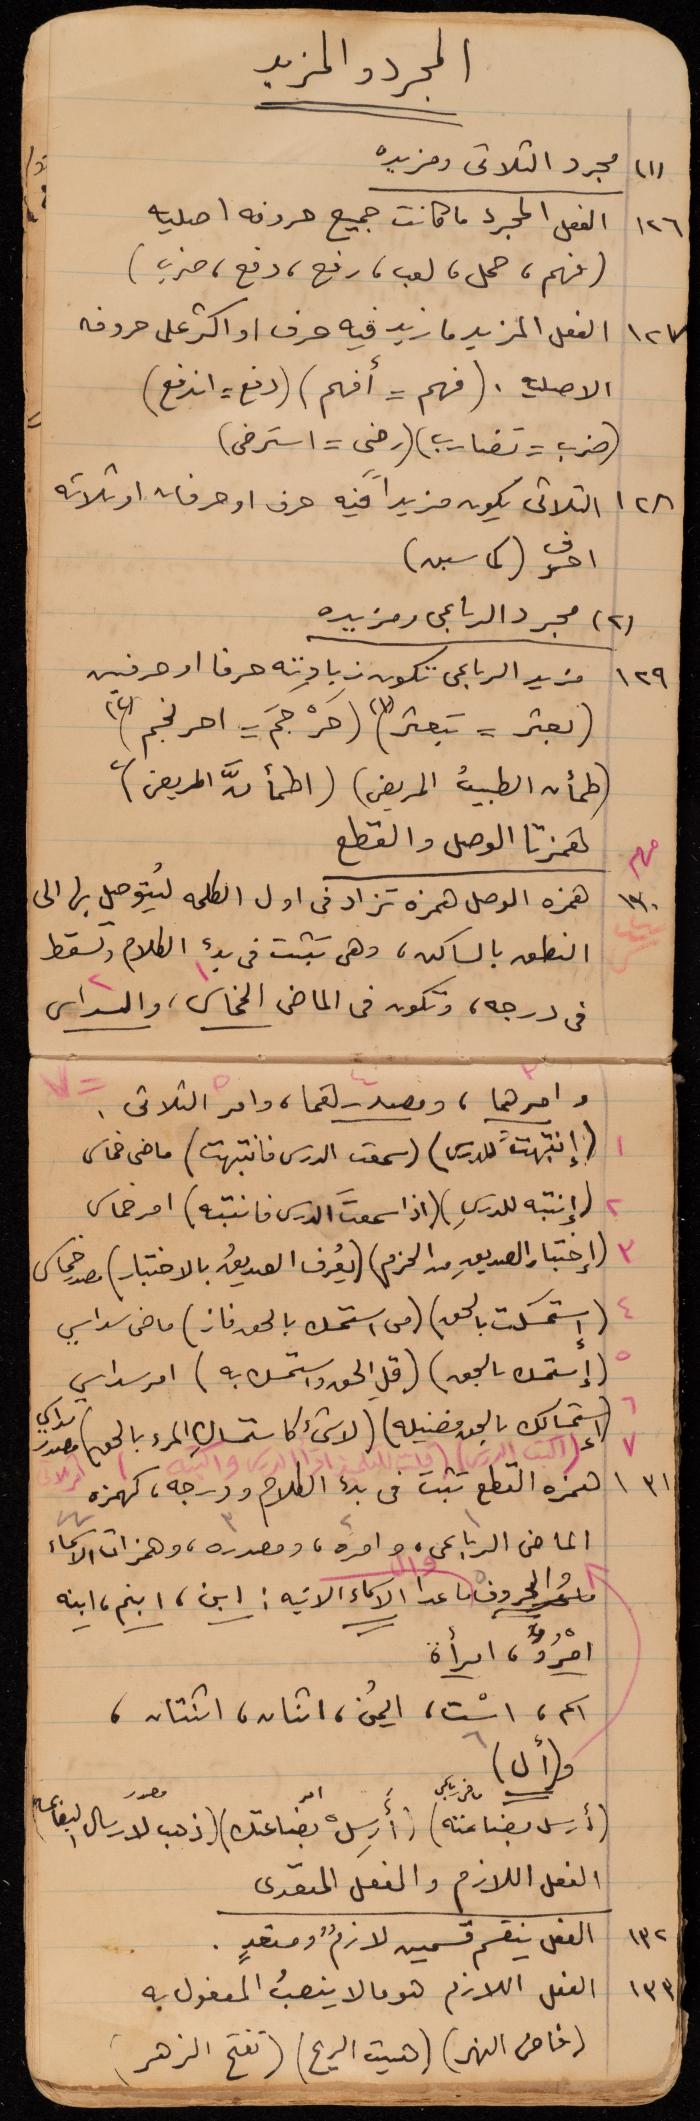 المجرد والمزيد
(١) مجرد الثلاثى ومزيده
١٢٦ الفعل المجرد ما كانت جميع حروفه اصليه
(فهم، حمل، لعب، رفع، دفع، ضرب)
١٢٧ الفعل المزيد ما زيد فيه حرف او اكثر على حروفه
الاصليه. (فهم = أفهم) (دفع = اندفع)
(ضرب = تضارب) (رضى = استرضى)
١٢٨ الثلاثى يكون مزيداً فيه حرف او حرفان او ثلاثه
احرف (كما سبق)
(٢) مجرد الرباعى ومزيده
١٢٩ مزيد الرباعى تكون زيادته حرفا او حرفين
(بعثر = تبعثر) (١) (حَرْجَمَ = احرنجم) (٢)
(طمأن الطبيبُ المريض) (اطمأنَّ المريض) ٢
همزتا الوصل والقطع
مهم
١٣٠ همزه الوصل همزه تزاد فى اول الكلمه ليُتوصل بها الى
النطق بالساكن، وهى تثبت فى بدء الكلام وتسقط
فى درجه، وتكون فى الماضى الخماسى، والسداسى
وامرهما، ومصدرهما، وامر الثلاثى. = ٧
١ (إنتبهتُ للدرس) (سمعت الدرس فانتبهت) ماضى خماسى
٢ (إنتبه للدرسِ) (اذا سمعتَ الدرس فانتبه) امر خماسى
٣ (إختبار الصديقِ من الحزم) (يُعرف الصديقُ بالاختبار) مصدر خماسى
٤ (إستمسكت بالحق) (من استمسك بالحق فاز) ماضى سداسي
٥ (إستمسك بالحق) (قلِ الحق واستمسك به) امر سداسي
٦ (إستمساكك بالحق فضيله) (لا شئ كاستمساكِ المرء بالحق) مصدر سداسي
٧ (اكتب الدرس) (قلت للتلميذ اقرأ الدرس واكتبه) امر ثلاثى
١٣١ همزه القطع تثبت فى بدء الكلام ودرجه، كهمزه
الماضى الرباعى، وامره، ومصدره، وهمزات الاسماء
والحروف ما عدا الاسماء الاتيه: ابن، ابنم، ابنه
امْرُؤٌ، امرأة
اسم، اسْت، ايمُن، اثنان، اثنتان،
و(أل)
ماضى رباعى امر مصدر
(أرسل بضاعته) (أَرسِلْ بضاعتك) (ذهب لارسال البضاعه)
الفعل اللازم والفعل المتعدى
١٣٢ الفعل ينقسم قسمين لازمٌ ومتعدٍ.
١٣٣ الفعل اللازم هو مالا ينصبُ المفعول به
(فاض النهر) (هبت الريح) (تفتح الزهر)